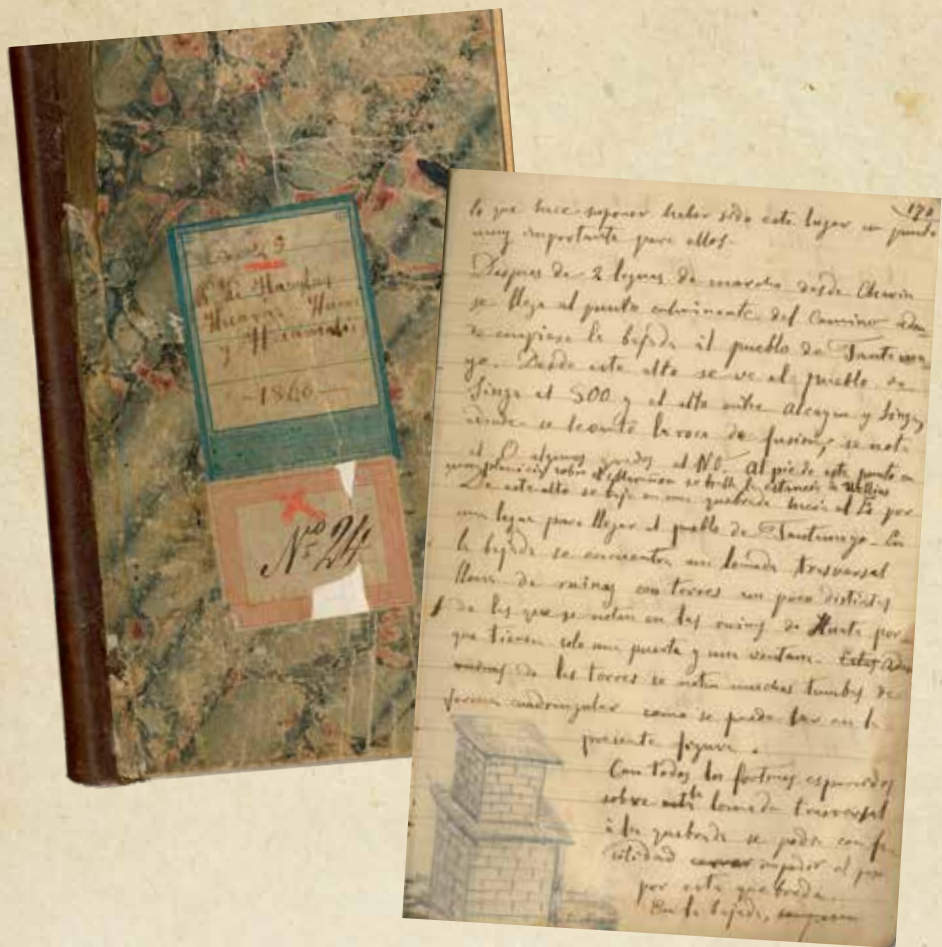 y Huamalies
-1860-
Nº 24
170
lo que hace suponer haber sido este lugar un punto
muy importante para ellos.
Despues de 2 leguas de marcha desde Chavin
se llega al punto culminante del Camino adon
de empieza la bajada al pueblo de Tantama
yo. Desde este alto se ve el pueblo de
Singa al SOO y el alto entre y Singa
donde se levantó la roca de fusion, se nota
al O algunos grados al NO. Al pie de este punto en
una planicie sobre el Marañon se halla la estancia de
De este alto se baja en una quebrada hacia al E por
una legua para llegar al pueblo de Tantamayo. En
la bajada se encuentra una lomada trasversal
llena de ruinas con torres un poco distintas
de las que se notan en las ruinas de por
que tienen solo una puerta y una ventana. Estas
ruinas de las torres se notan muchas tumbas de
forma cuadrangular como se puede ver en la
presente figura.
Con todos los fortines esparcidos
sobre esta lomada trasversal
a la quebrada se podia con fa
cilidad cerrar impedir el paso
por esta quebrada.
En la bajada,